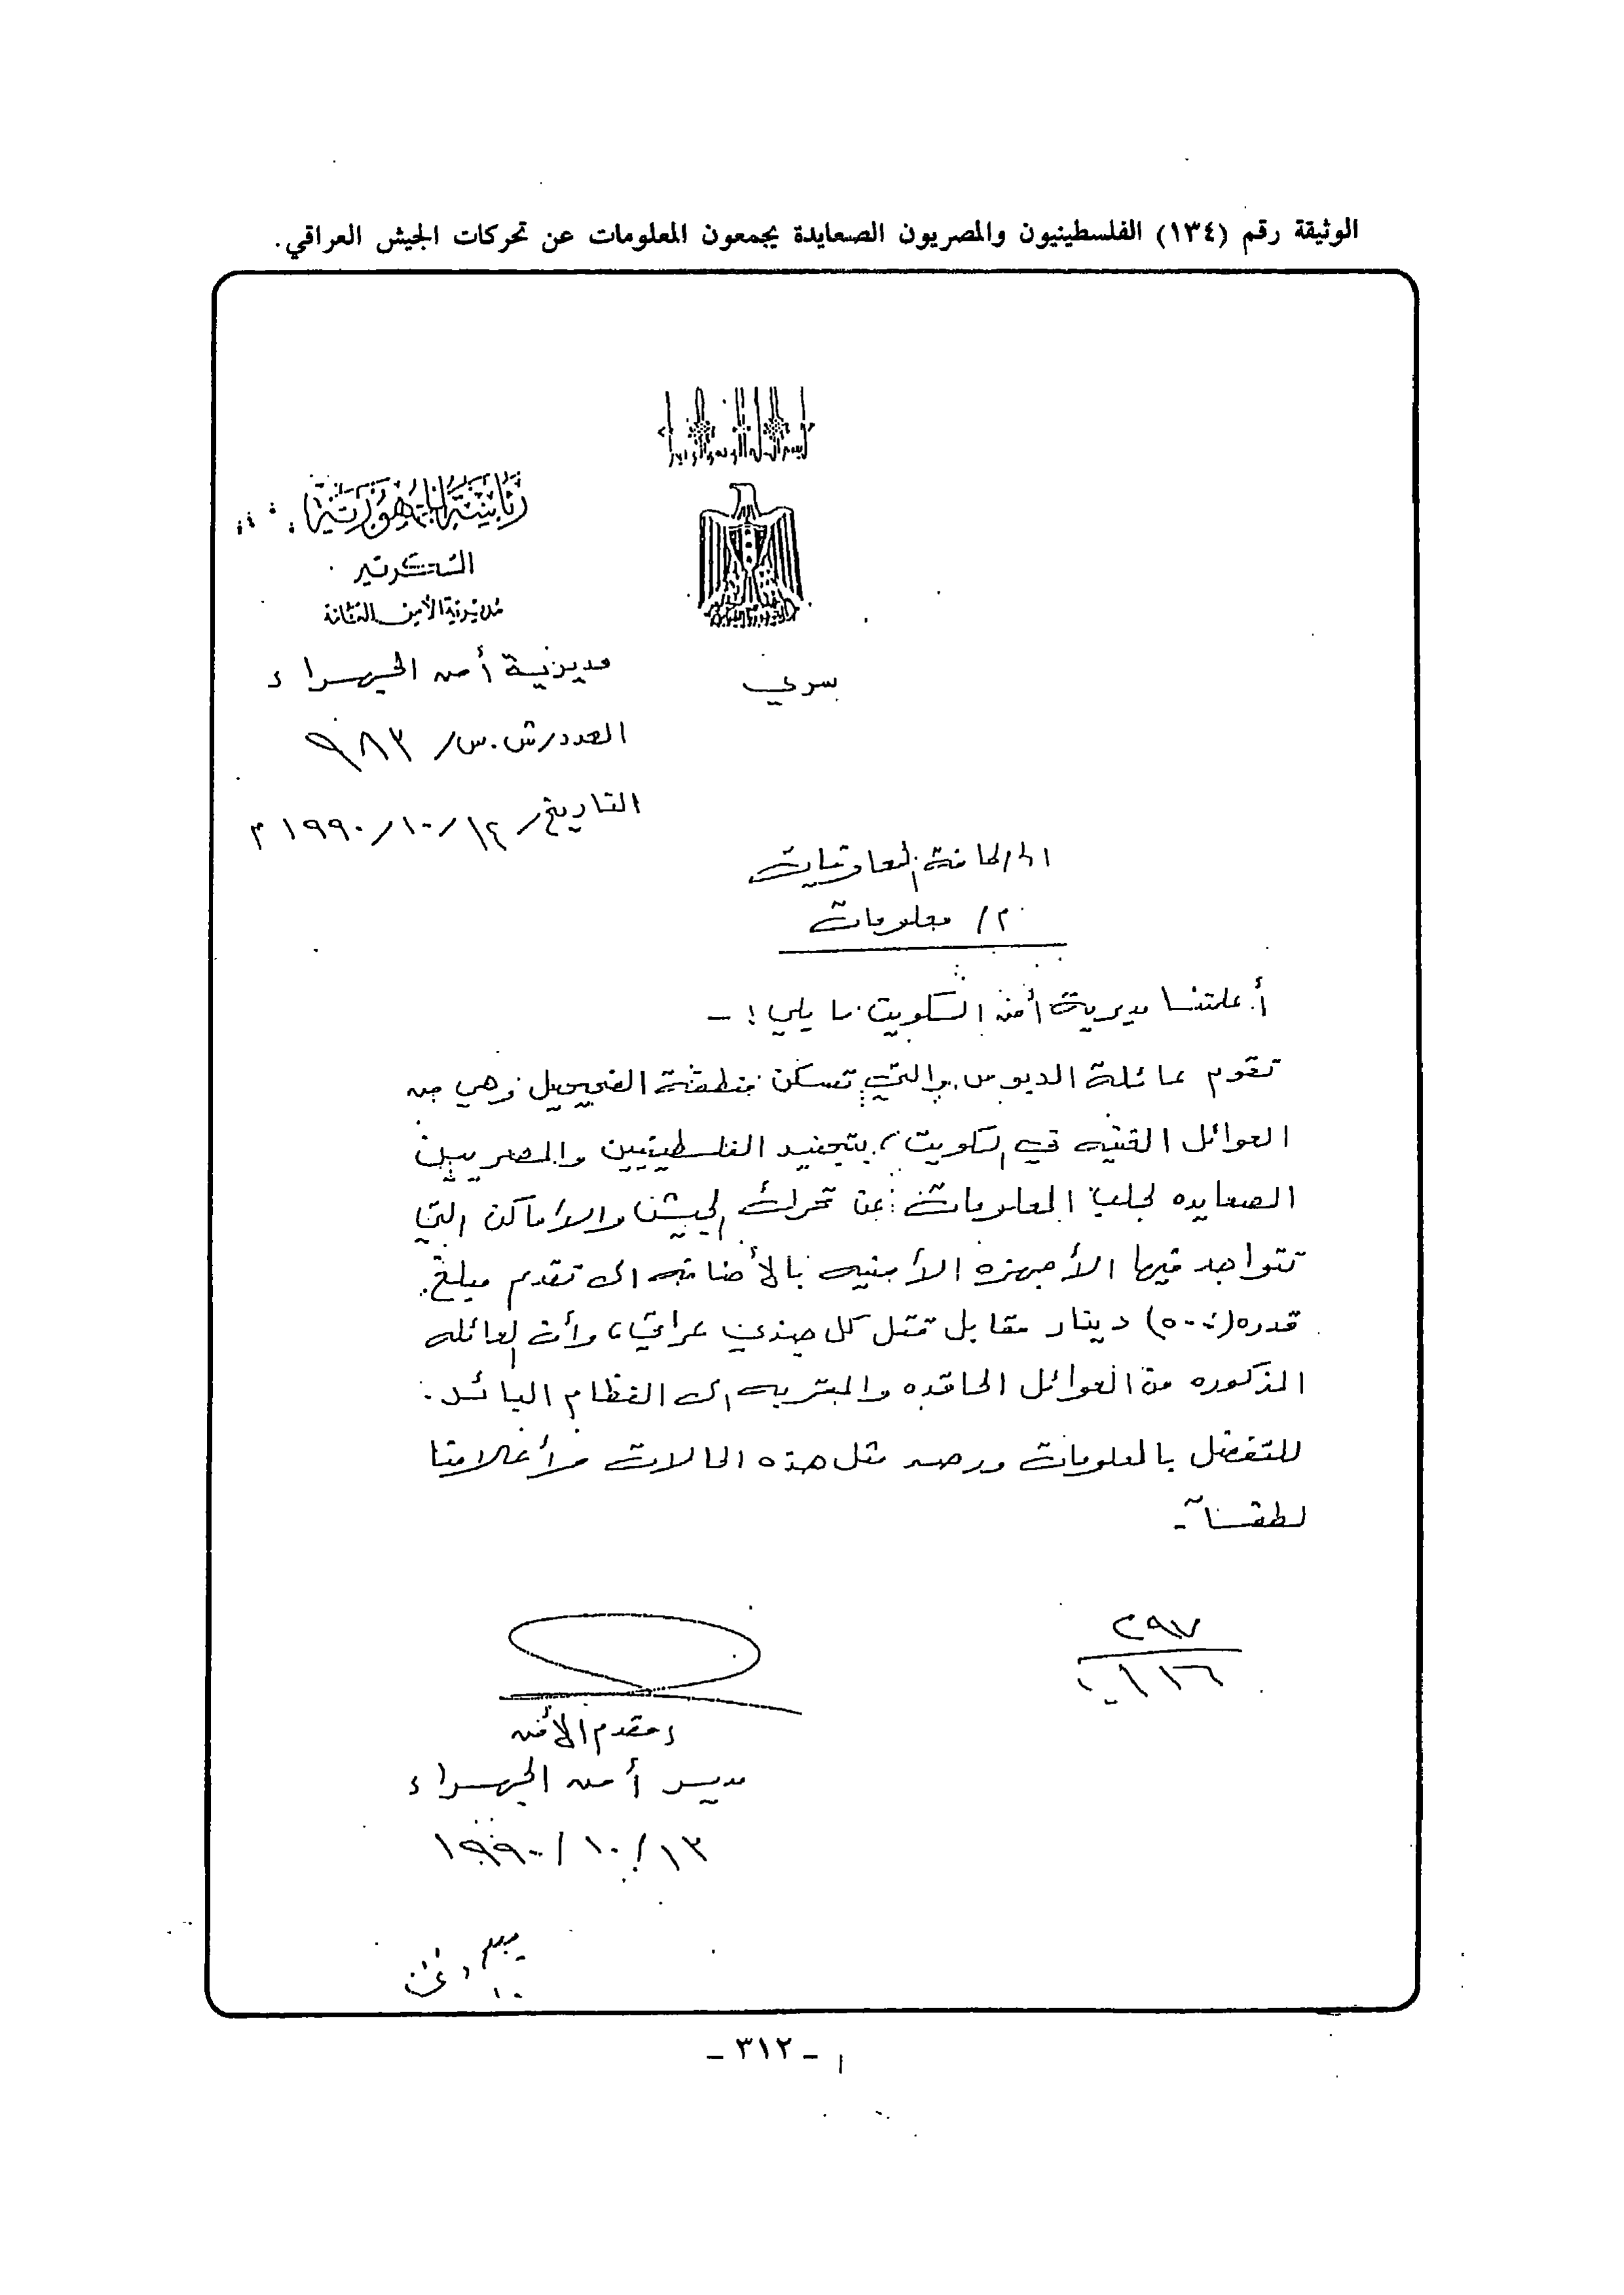 الوثيقة رقم (١٣٤) الفلسطينيون والمصريون الصعايدة يجمعون المعلومات عن تحركات الجيش العراقي.
رئاسة الجمهورية
السكرتير
مديرية الأمن العامة
مديرية أمن الجهراء
سري
العدد/ش.س/ ٩٨٣
التاريخ/ ١٢/١٠/١٩٩٠ م
الى/كافة المعاونيات
م/ معلومات
أعلمتنا مديرية أمن الكويت ما يلي :-
تقوم عائلة الدبوس والتي تسكن منطقة الفحيحيل وهي من
العوائل الغنيه في الكويت، بتجنيد الفلسطينيين والمصريين
الصعايده لجلب المعلومات عن تحركات الجيش والأماكن التي
تتواجد فيها الأجهزه الأمنيه بالأضافه الى تقديم مبلغ
قدره (٥٠٠) دينار مقابل قتل كل جندي عراقي، وأن العائله
المذكوره من العوائل الحاقده والمقربه الى النظام البائد.
للتفضل بالمعلومات ورصد مثل هذه الحالات وأعلامنا
لطفاً -
٢٩٧
مقدم الأمن
مدير أمن الجهراء
١٩٩٠/١٠/١٣
- ٣١٢ -